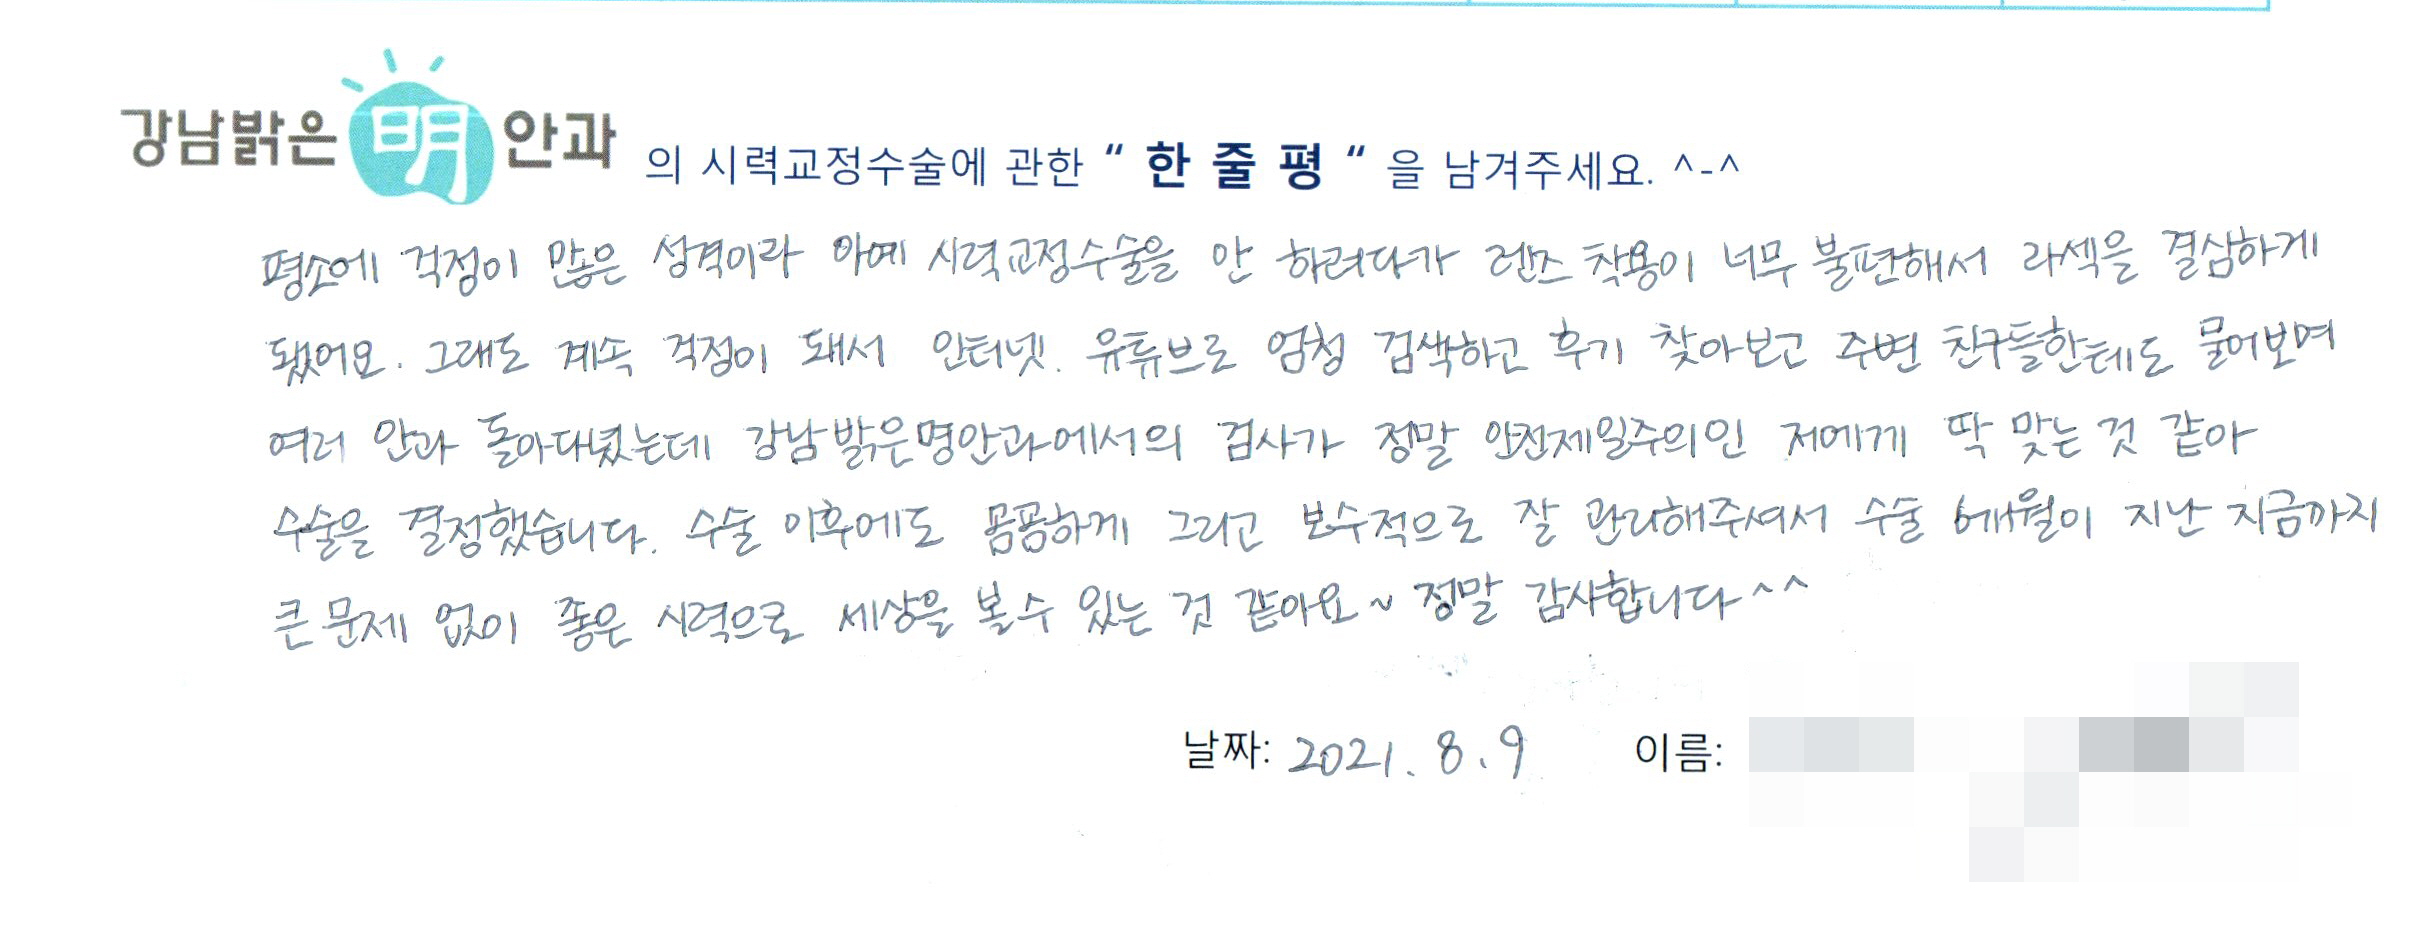 강남밝은 明 안과 의 시력교정수술에 관한 “ 한 줄 평 “ 을 남겨주세요. ^-^
평소에 걱정이 많은 성격이라 아예 시력교정수술을 안 하려다가 렌즈 착용이 너무 불편해서 라섹을 결심하게
됐어요. 그래도 계속 걱정이 돼서 인터넷. 유튜브로 엄청 검색하고 후기 찾아보고 주변 친구들한테도 물어보며
여러 안과 돌아다녔는데 강남밝은명안과에서의 검사가 정말 안전제일주의인 저에게 딱 맞는 것 같아
수술을 결정했습니다. 수술 이후에도 꼼꼼하게 그리고 보수적으로 잘 관리해주셔서 수술 6개월이 지난 지금까지
큰 문제 없이 좋은 시력으로 세상을 볼 수 있는 것 같아요~ 정말 감사합니다^^
날짜: 2021. 8. 9 이름: